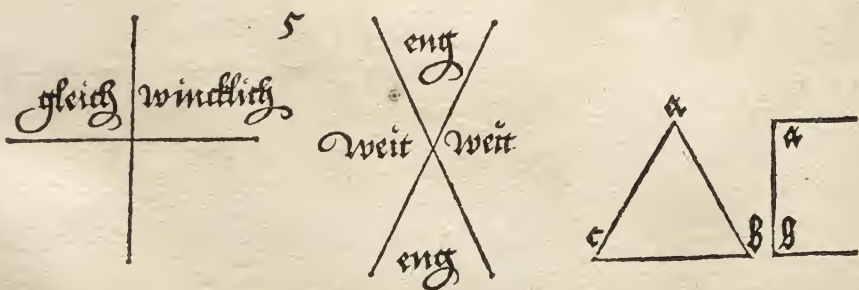 5
gleich wincklich
eng
weit weit
eng
a
c b
a
b